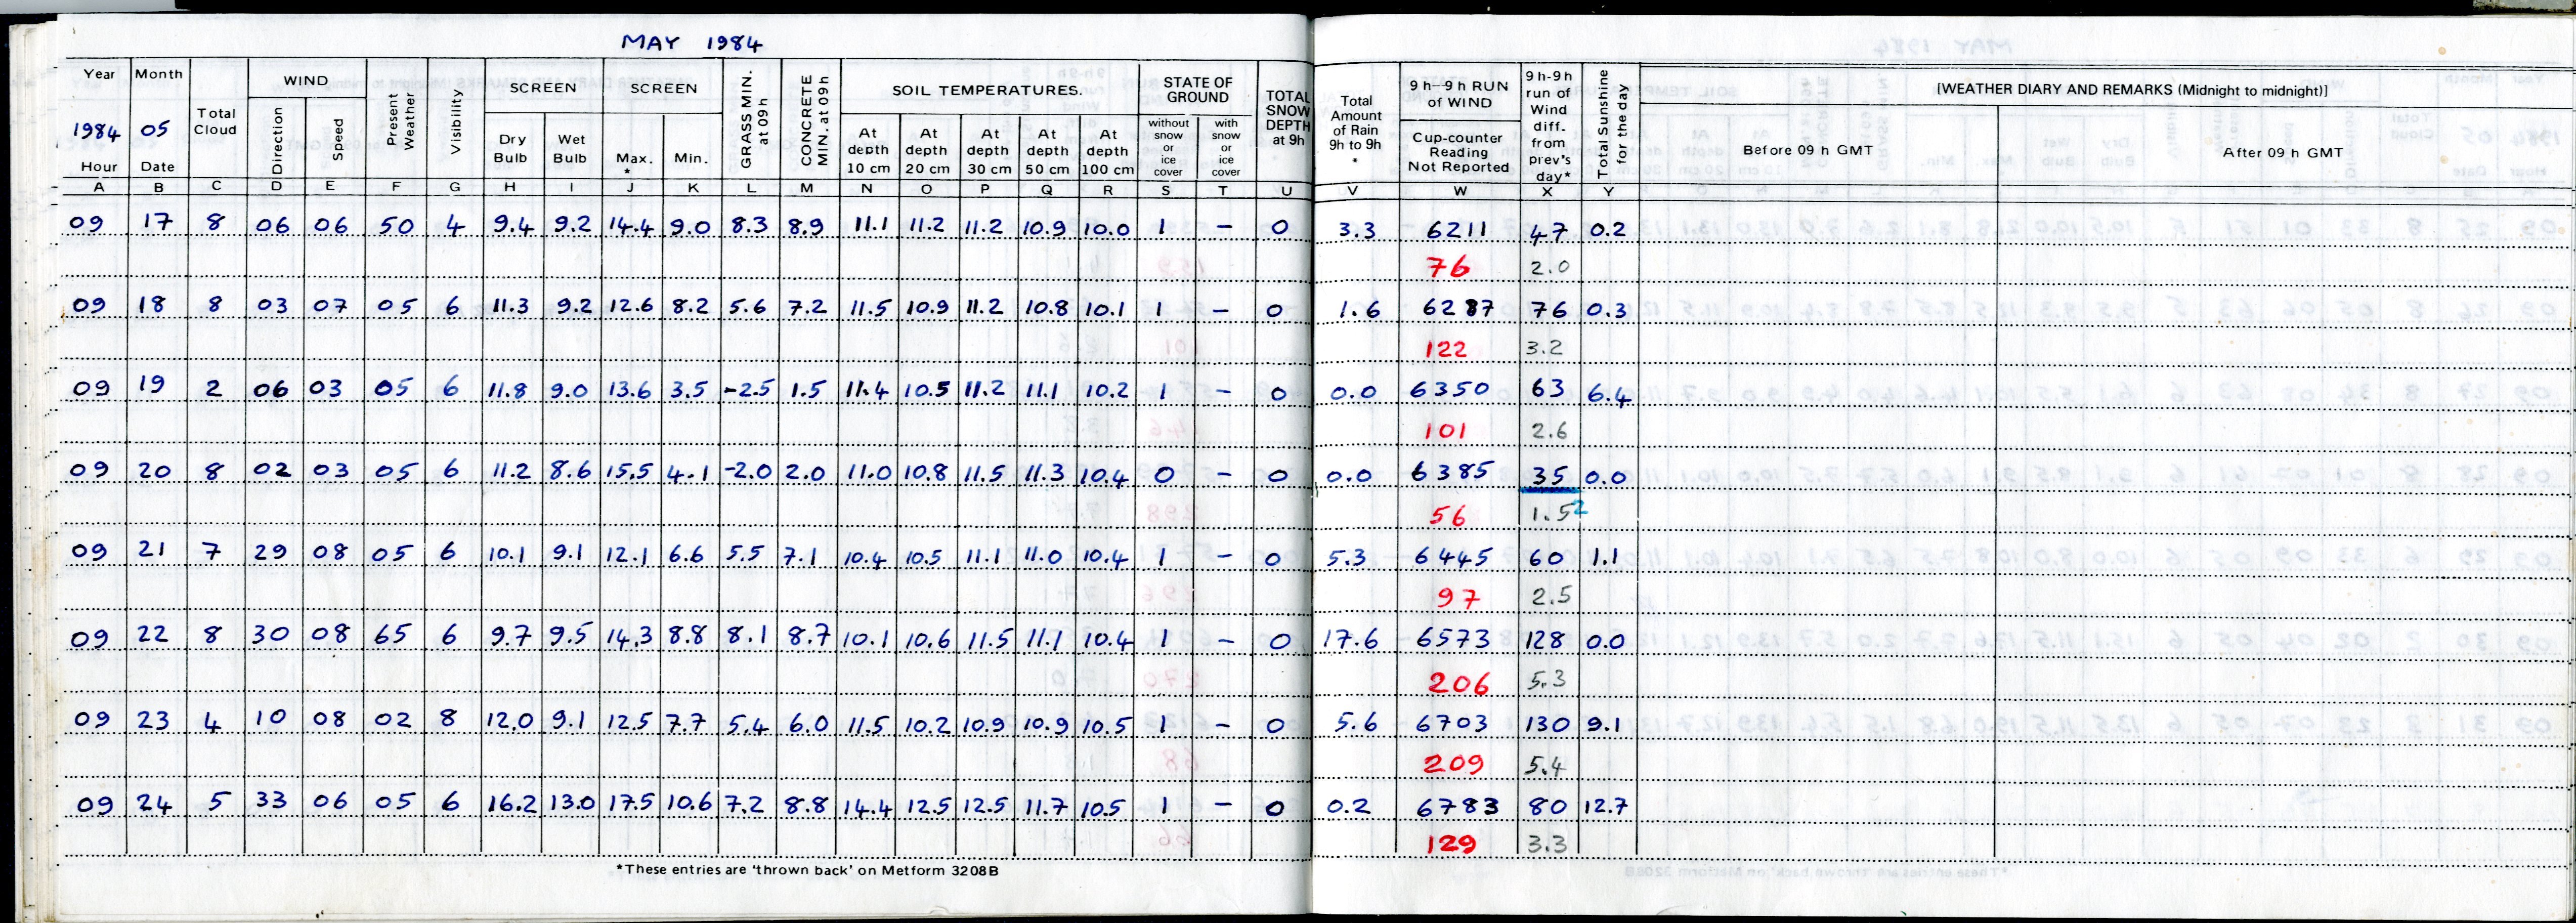 MAY 1984
Year Month Total Cloud WIND Present Weather Visibility SCREEN SCREEN GRASS MIN. at 09h CONCRETE MIN. at 09h SOIL TEMPERATURES. STATE OF GROUND TOTAL SNOW DEPTH at 9h Total Amount of Rain 9h to 9h * 9 h--9 h RUN of WIND 9 h-9 h run of Wind diff. from prev's day* Total Sunshine for the day [WEATHER DIARY AND REMARKS (Midnight to midnight)]
1984 05 Direction Speed Dry Bulb Wet Bulb Max. * Min. At depth 10 cm At depth 20 cm At depth 30 cm At depth 50 cm At depth 100 cm without snow or ice cover with snow or ice cover Cup-counter Reading Not Reported Before 09 h GMT After 09 h GMT
Hour Date
A B C D E F G H I J K L M N O P Q R S T U V W X Y
09 17 8 06 06 50 4 9.4 9.2 14.4 9.0 8.3 8.9 11.1 11.2 11.2 10.9 10.0 1 – 0 3.3 6211 47 0.2
76 2.0
09 18 8 03 07 05 6 11.3 9.2 12.6 8.2 5.6 7.2 11.5 10.9 11.2 10.8 10.1 1 – 0 1.6 6287 76 0.3
122 3.2
09 19 2 06 03 05 6 11.8 9.0 13.6 3.5 -2.5 1.5 11.4 10.5 11.2 11.1 10.2 1 – 0 0.0 6350 63 6.4
101 2.6
09 20 8 02 03 05 6 11.2 8.6 15.5 4.1 -2.0 2.0 11.0 10.8 11.5 11.3 10.4 0 – 0 0.0 6385 35 0.0
56 1.5 2
09 21 7 29 08 05 6 10.1 9.1 12.1 6.6 5.5 7.1 10.4 10.5 11.1 11.0 10.4 1 – 0 5.3 6445 60 1.1
97 2.5
09 22 8 30 08 65 6 9.7 9.5 14.3 8.8 8.1 8.7 10.1 10.6 11.5 11.1 10.4 1 – 0 17.6 6573 128 0.0
206 5.3
09 23 4 10 08 02 8 12.0 9.1 12.5 7.7 5.4 6.0 11.5 10.2 10.9 10.9 10.5 1 – 0 5.6 6703 130 9.1
209 5.4
09 24 5 33 06 05 6 16.2 13.0 17.5 10.6 7.2 8.8 14.4 12.5 12.5 11.7 10.5 1 – 0 0.2 6783 80 12.7
129 3.3
*These entries are 'thrown back' on Metform 3208B